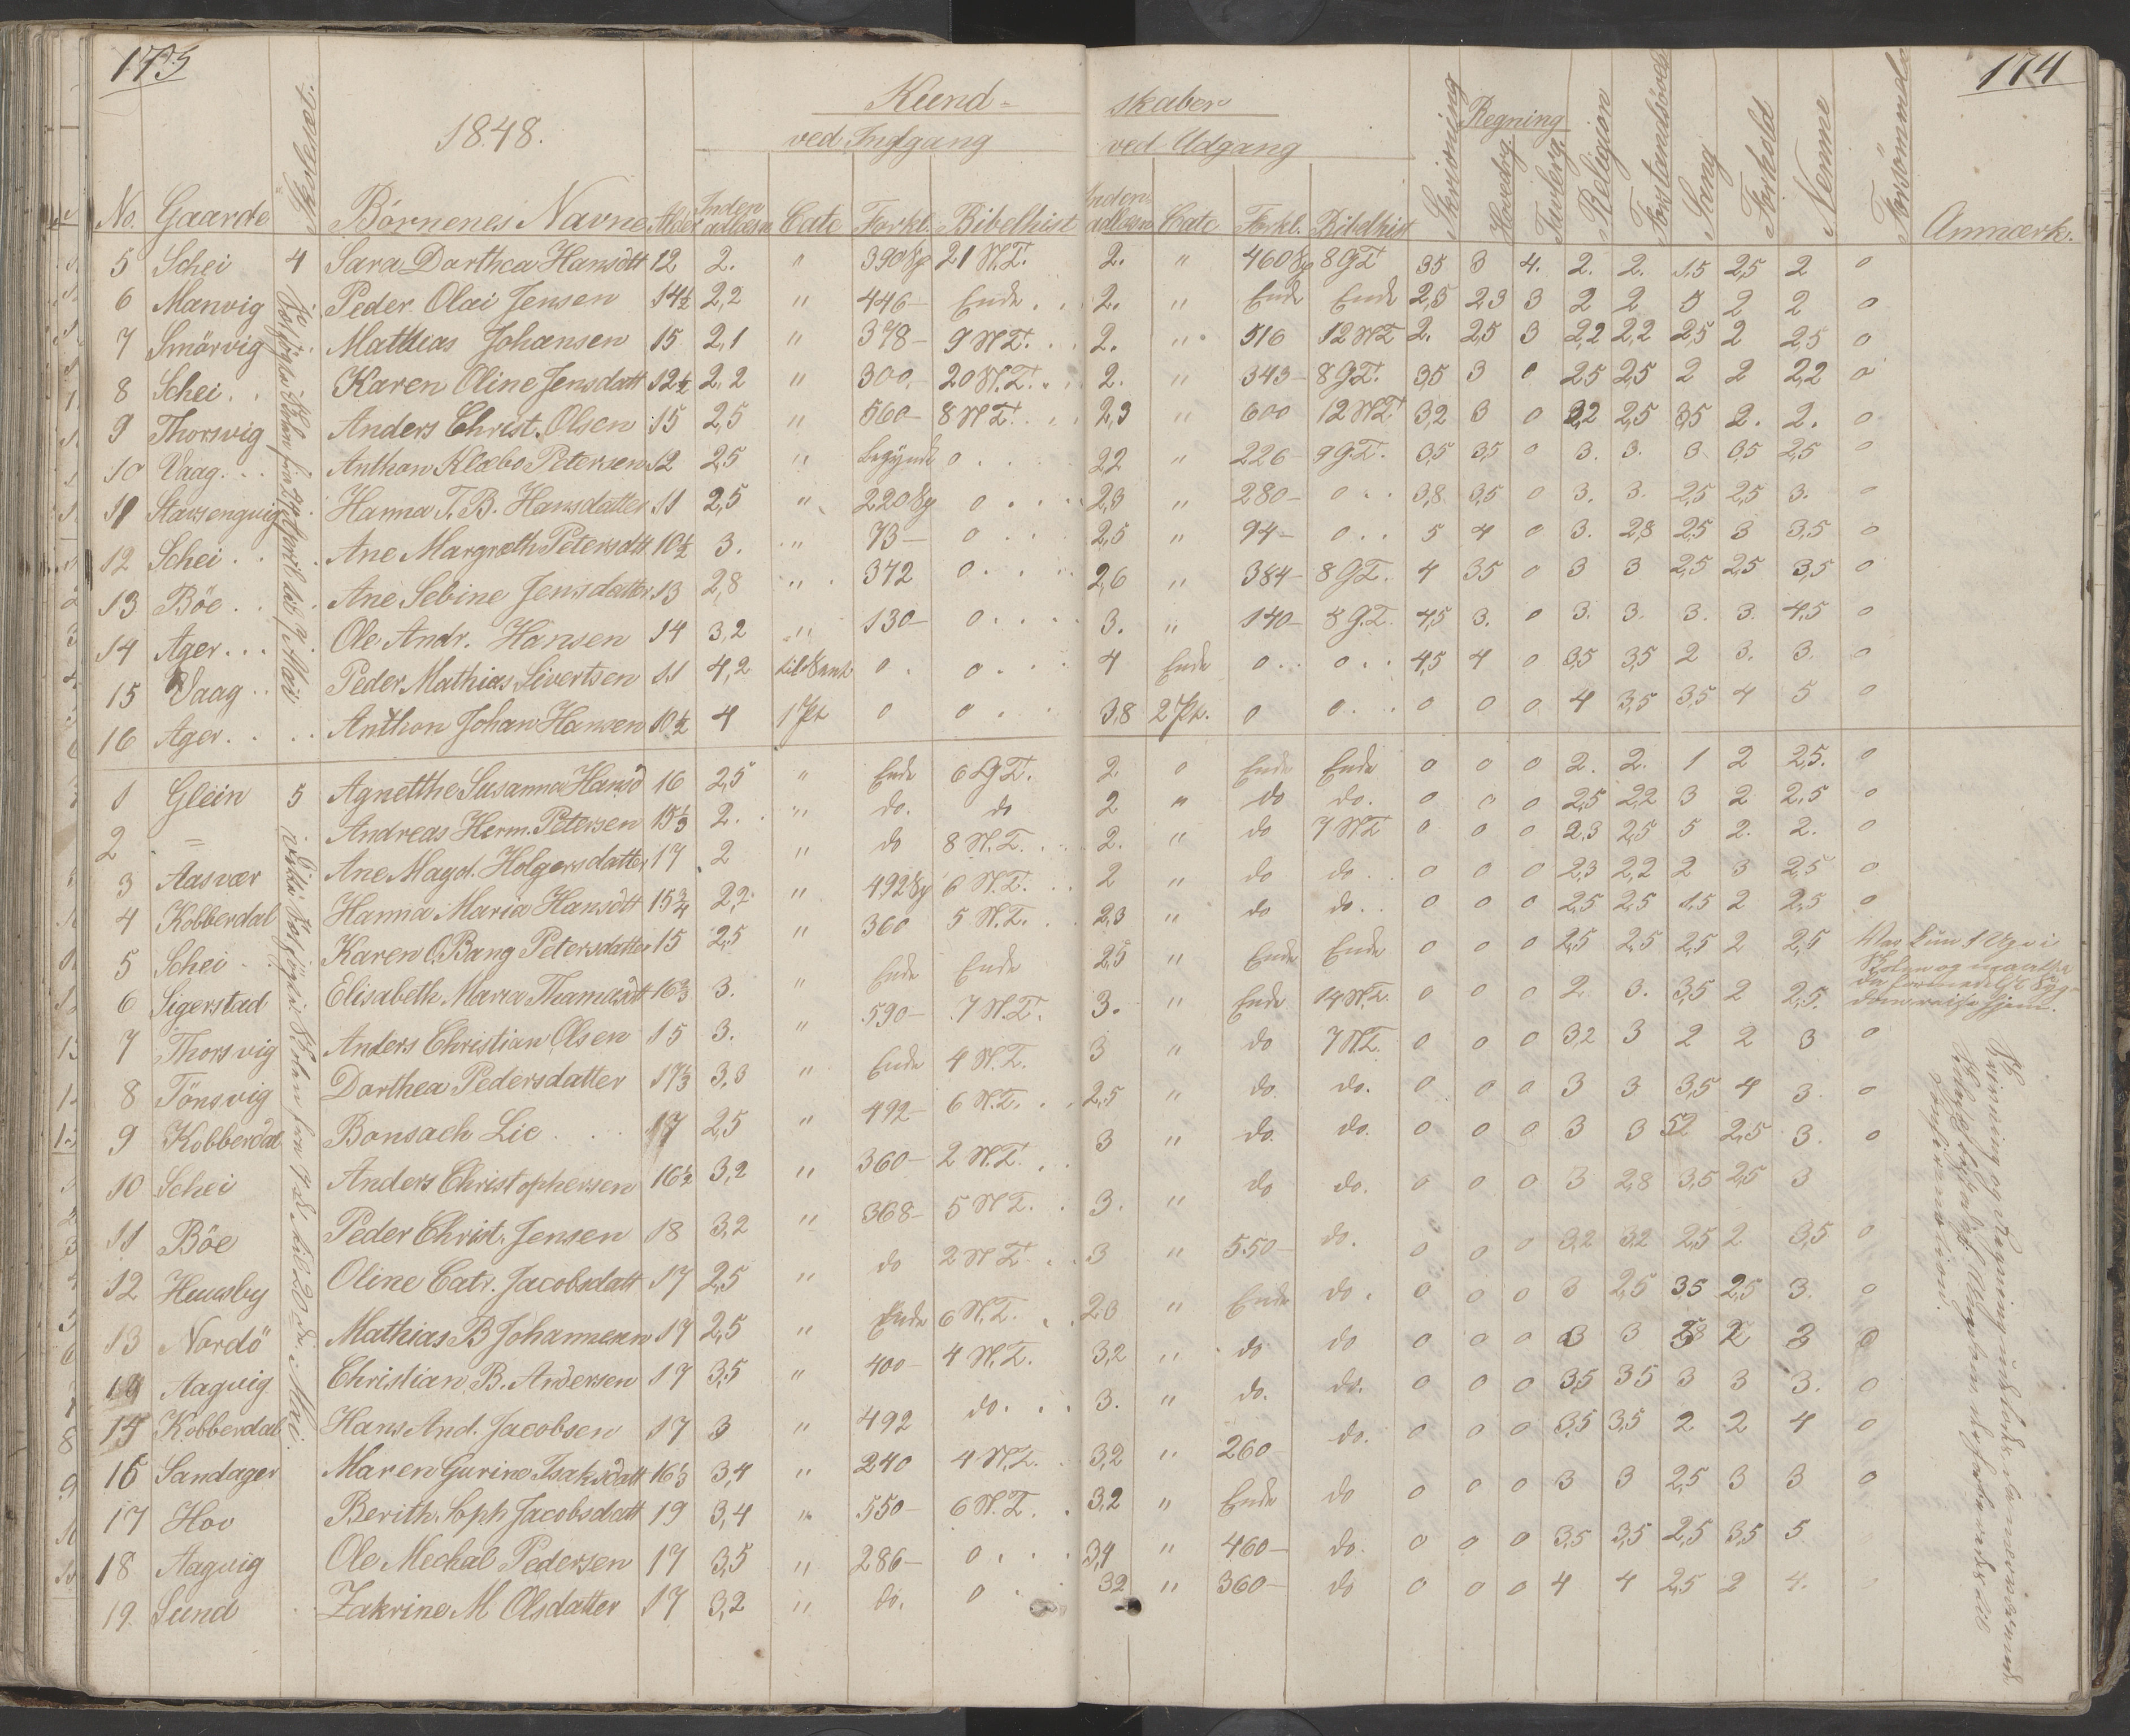 173
174
Kund-
skaber
1848.
ved Indgang
ved Udgang
Skrivning
Regning
Hovedrg
Tavlerg
Religion
Forstandsövels
Sang
Forhold
Nemme
Forsömmels
No. Gaarde Börnenes Navne Alder Indenadlæsn Catc Forkl. Bibelhist Indenadlæsn Catc Forkl. Bibelhist Anmærk.
5 Schei 4 Sara Dorthea Hansdtt 12 2. " 390Sp 21 N.T. 2. " 460Sp 8 G.T 3,5 3 4. 2. 2. 1,5 2,5 2 0
6 Manvig Peder Olai Jensen 14½ 2,2 " 446- Ende 2. " Ende Ende 2,5 2,3 3 2 2 5 2 2 0
7 Smörvig Matthias Johansen 15 2,1 " 378- 9 N.T. 2. " 516 12 N.T 2. 2,5 3 2,2 2,2 2,5 2 2,5 0
8 Schei Karen Oline Jensdatt 12½ 2,2 " 300,- 20 N.T. 2. " 343- 8 G.T. 3,5 3 0 2,5 2,5 2 2 2,2 0
9 Thorsvig Anders Christ. Olsen 15 2,5 " 560- 8 N.T. 2,3 " 600 12 N.T 3,2 3 0 3,2 2,5 3,5 2. 2. 0
10 Vaag Anthon Klæbo Petersen 12 2,5 " begynd 0 2,2 " 226- 9 G.T. 3,5 3,5 0 3. 3. 3 3,5 2,5 0
11 Stavsengvig Hanna T. B. Hansdatter 11 2,5 " 220Sp 0 2,3 " 280- 0 3,8 3,5 0 3. 3. 2,5 2,5 3. 0
12 Schei Ane Margreth Petersdtt 10½ 3. " 73- 0 2,5 " 94- 0 5 4 0 3. 2,8 2,5 3 3,5 0
13 Böe Ane Sebine Jensdatter 13 2,8 " 372 0 2,6 " 384- 8 G.T. 4 3,5 0 3 3 2,5 2,5 3,5 0
14 Ager Ole Andr. Hansen 14 3,2 " 130- 0 3. " 140- 8 G.T. 4,5 3. 0 3. 3. 3. 3. 4,5 0
15 Vaag Peder Mathias Sivertsen 11 4,2 0 0 4 Ende 0 0 4,5 4 0 3,5 3,5 2 3. 3. 0
16 Ager Anthon Johan Hansen 10½ 4 1 Pt 0 0 3,8 2 Pt. 0 0 0 0 0 4 3,5 3,5 4 5 0
1 Glein 5 Agnetthe Susanna Hansd 16 2,5 " Ende 6 G.T. 2 0 Ende Ende 0 0 0 2. 2. 1 2 2,5. 0
2 = Andreas Herm. Petersen 15⅓ 2. " do. do 2 " do do. 0 0 0 2,5 2,2 3 2 2,5 0
3 Aasvær Ane Magd. Holgersdatter 17 2 " do 8 N.T. 2. " do 7 N.T 0 0 0 2,3 2,5 5 2. 2. 0
4 Kobberdal Hanna Maria Hansdtt 15¾ 2,2 " 492Sp 6 N.T. 2 " do do 0 0 0 2,3 2,2 2 3 2,5 0
5 Schei Karen O. Bang Petersdatter 15 2,5 " 360 5 N.T. 2,3 " do do 0 0 0 2,5 2,5 1,5 2 2,5 0
6 Sigerstad Elisabeth Maria Thamasdtt 16⅔ 3. " Ende Ende 2,5 " Ende Ende 0 0 0 2,5 2,5 2,5 2 2,5
Var kun 1 Uge i
Skolen og maatte
da formedelst Syg-
dom reise hjem.
7 Thorsvig Anders Christian Olsen 15 3. " 590- 7 N.T. 3. " Ende 14 N.T. 0 0 0 2. 3. 3,5 2 2,5.
8 Tönsvig Dorthea Pedersdatter 17⅓ 3,3 " Ende 4 N.T. 3 " do 7 N.T. 0 0 0 3,2 3 2 2 3 0
9 Kobberdal Bonsach Lie 17 2,5 " 492- 6 N.T. 2,5 " do. do. 0 0 0 3 3 3,5 4 3. 0
10 Schei Anders Christophersen 16½ 3,2 " 360- 2 N.T. 3 " do. do. 0 0 0 3 3 2,5 3. 0
11 Böe Peder Christ. Jensen 18 3,2 " 368- 5 N.T. 3. " do do. 0 0 0 3 2,8 3,5 2,5 3
12 Heusby Oline Catr. Jacobsdatt 17 2,5 " do 2 N.T. 3 " 550- do. 0 0 0 3,2 3,2 2,5 2 3,5 0
13 Nordö Mathias B Johannesen 17 2,5 " Ende 6 N.T. 2,3 " Ende do. 0 0 0 3 2,5 3,5 2,5 3. 0
14 Aagvig Christian B. Andersen 17 3,5 " 400- 4 N.T. 3,2 " do do 0 0 0 3 3 2 3 0
15 Kobberdal Hans And. Jacobsen 17 3 " 492 do. 3. " do. do. 0 0 0 3,5 3,5 3 3 3. 0
16 Sandager Maren Gurine Isaksdatt 16⅓ 3,4 " 240 4 N.T. 3,2 " 260 do. 0 0 0 3,5 3,5 2 2 4 0
17 Hov Berith Soph Jacobsdatt 19 3,4 " 550- 6 N.T. 3,2 " Ende do 0 0 0 3 3 2,5 3 3 0
18 Aagvig Ole Mechal Pedersen 17 3,5 " 286- 0 3,4 " 460- do. 0 0 0 3,5 3,5 2,5 3,5 5
19. Sund Zakrine M Olsdatter 17 3,2 " do. 0 3,2 " 360- do 0 0 0 4 4 2,5 2 4.
Skrivning og Regning